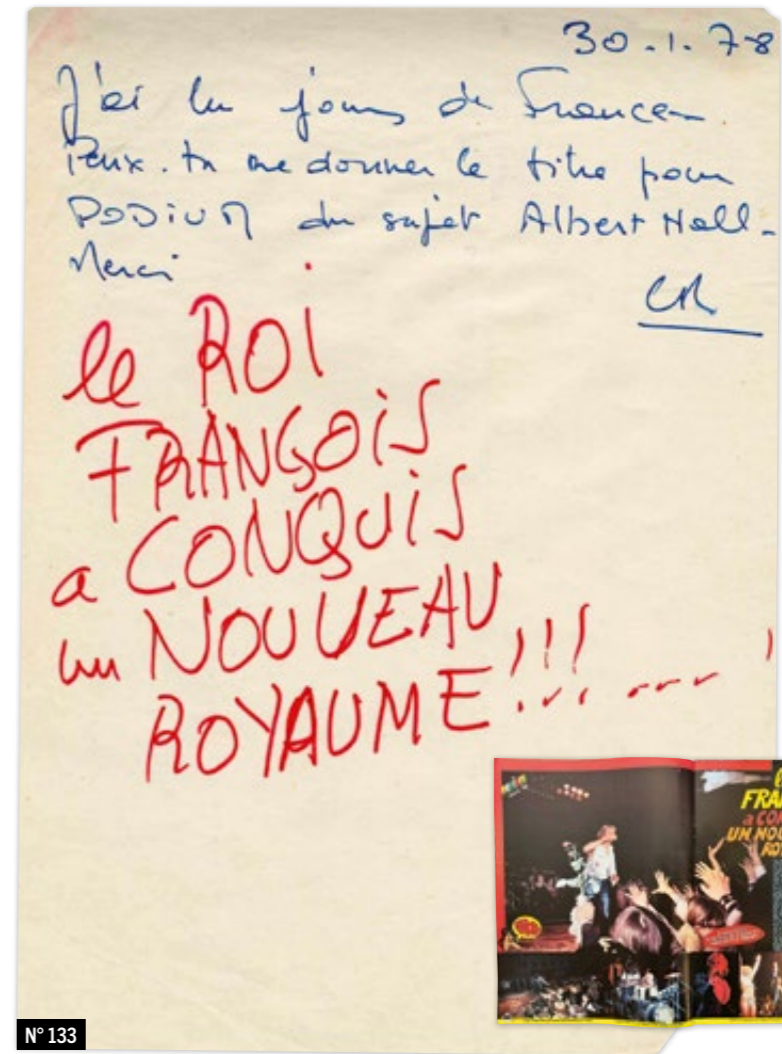 30.1.78
J'ai lu jours de France
Peux-tu me donner le titre pour
PODIUM du sujet Albert Hall-
Merci
CR
le ROI
FRANÇOIS
a CONQUIS
un NOUVEAU
ROYAUME!!!
FRA
a CON
UN NOU
RO
N° 133